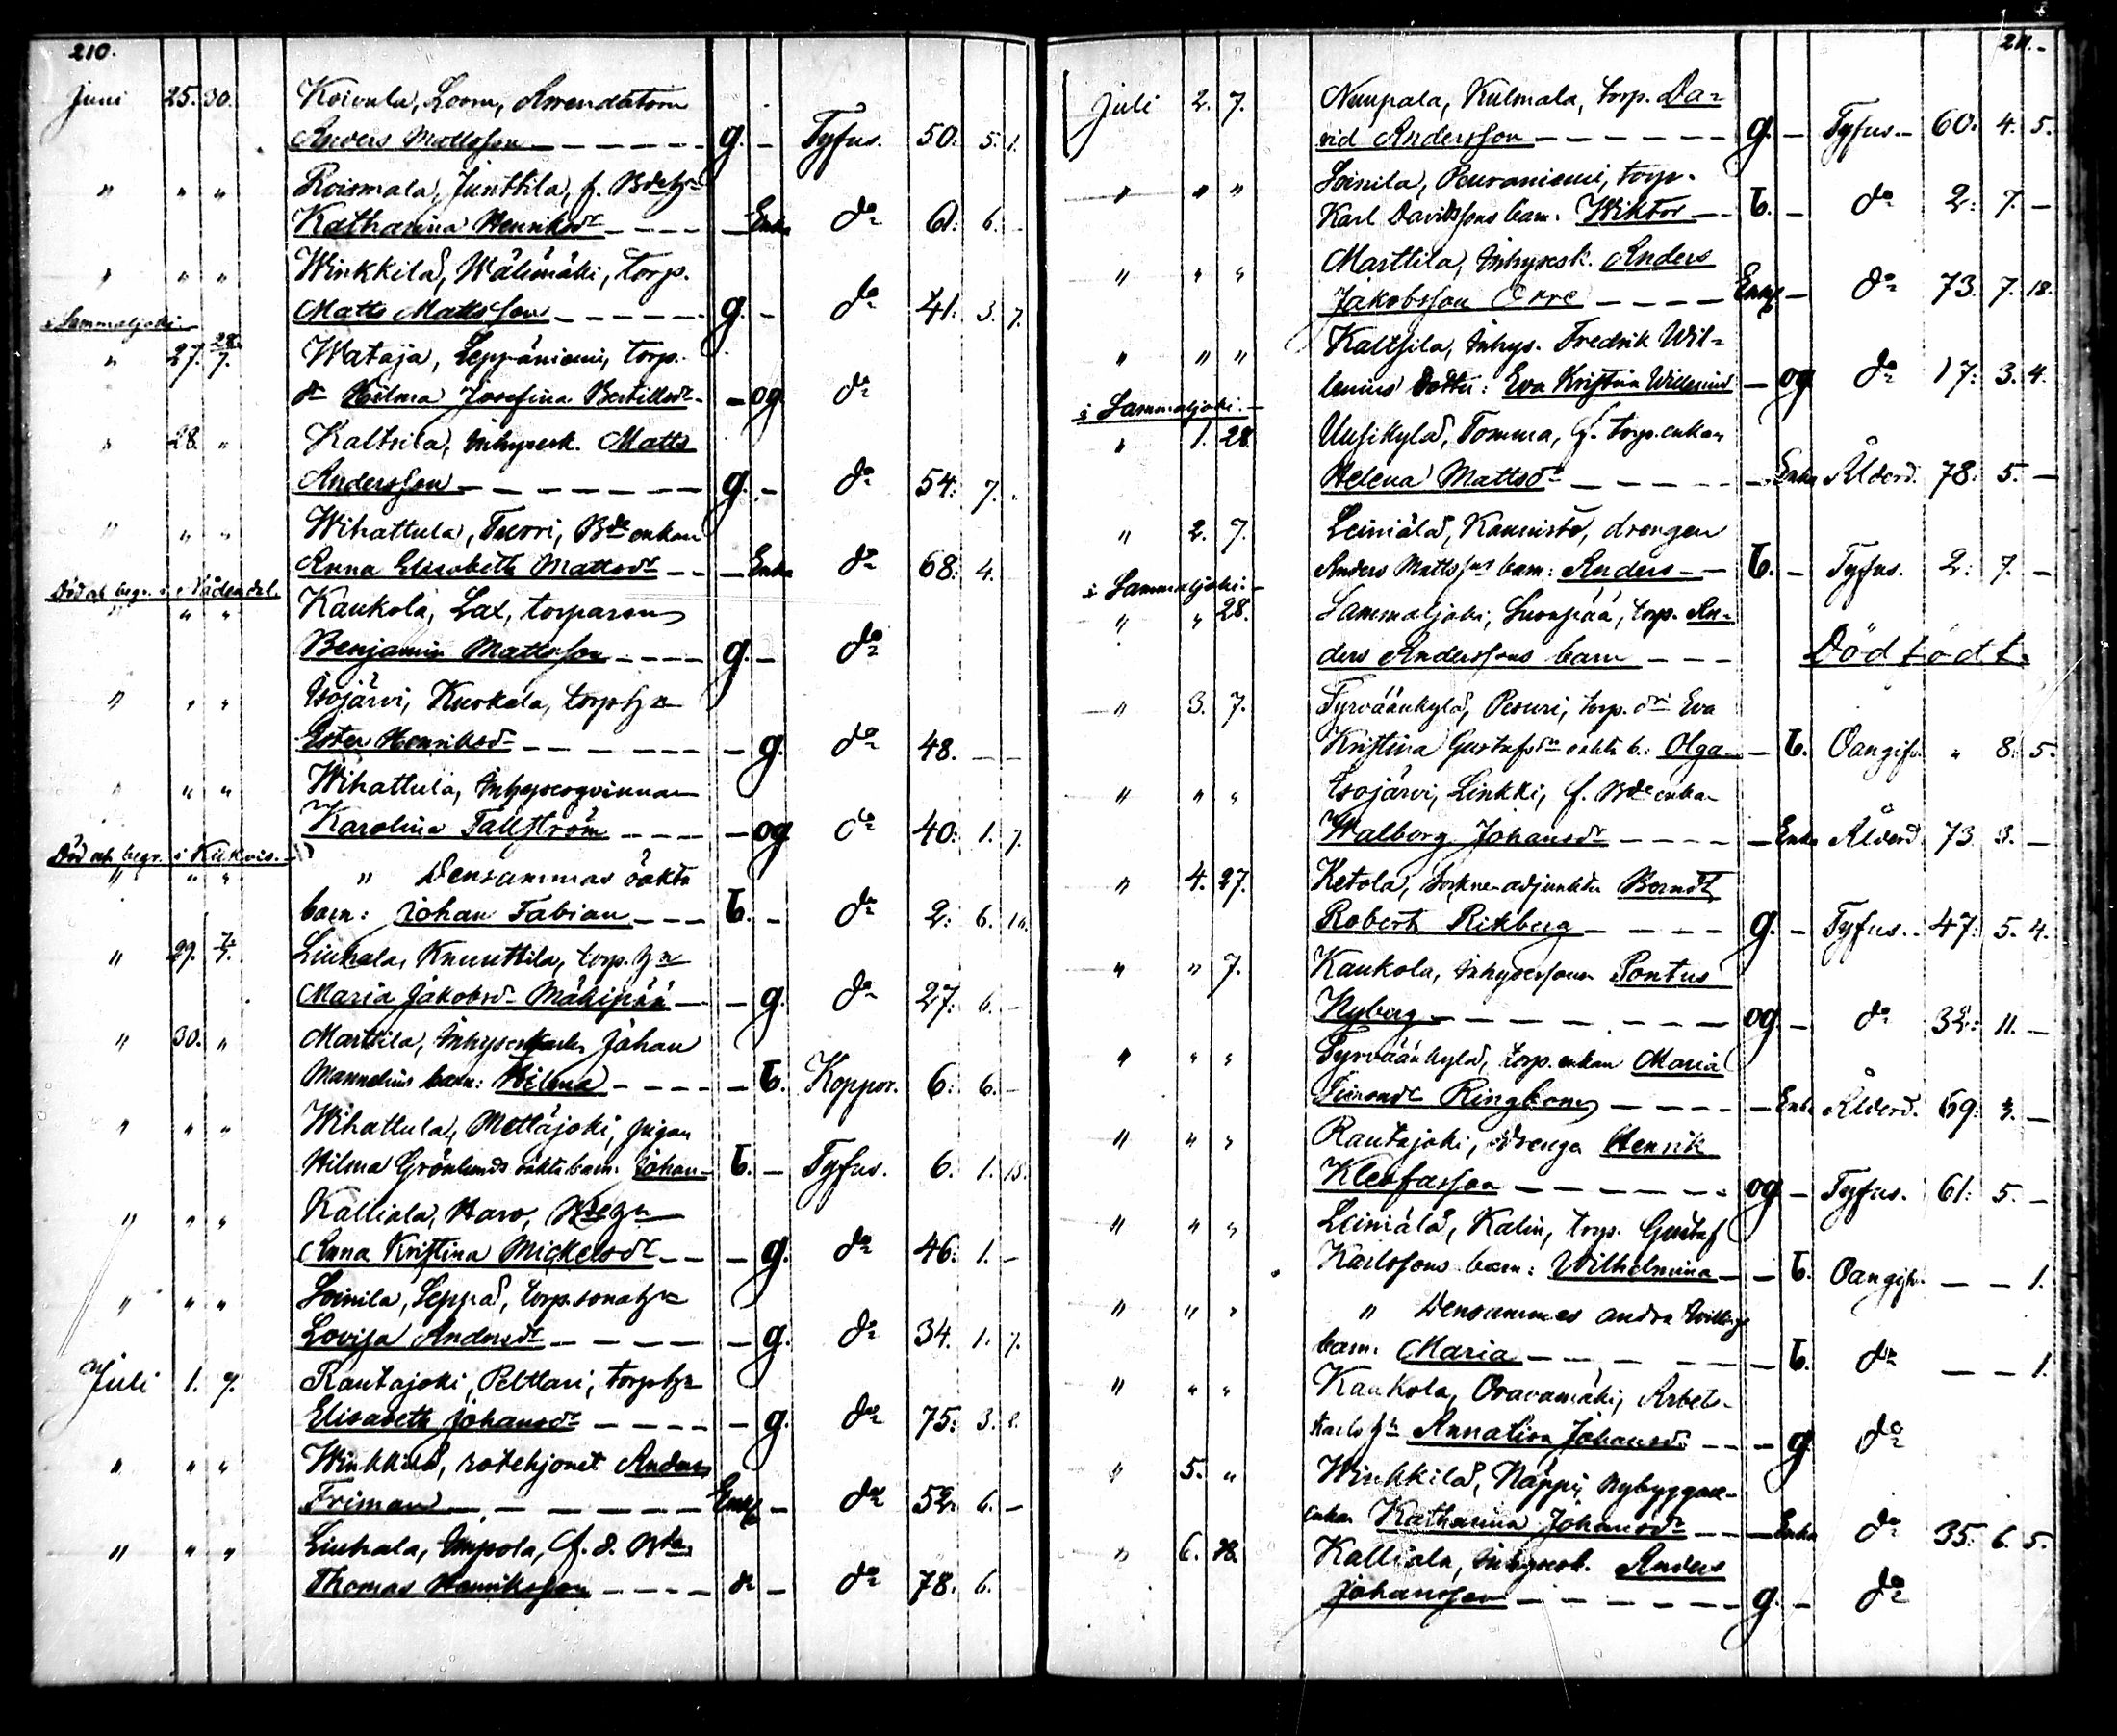 210.
Juni 25. 30. Koivula, Loom, Arrendatorn
Anders Mattsson - - - - g. - Tyfus. 50. 5. 1.
" " " Roismala, Junttila, f. Bde hu
Katharina Henriksdr - - - - Enka do 61. 6. -
" " " Winkkilä, Wälimäki, torp.
Matts Mattsson - - - - g. - do 41. 3. 7.
i Sammaljoki. -
" 27. 28/7. Wataja, Leppäniemi, torp.
dr Hilma Josefina Bertillsdr - - og do
" 28. " Kaltsila, Inhysesk. Matts
Andersson - - - - g. - do 54. 7. -
" " " Wihattula, Tuori, Bde enkan
Anna Elisabeth Mattsdr - - Enka do 68. 4. -
Död och begr. i Nådendal.
" " " Kaukola, Lax, torparen
Benjamin Mattsson - - - - g. - do
" " " Isojärvi, Kuokala, torp hu
Ester Henriksdr - - - - - g. do 48. - -
" " " Wihattula, Inhysesqvinnan
Karolina Tallström - - - - og do 40. 1. 7.
Död och begr. i Kiikois. -
" " " " Densammas oäkta
barn: Johan Fabian - - - b. - do 2. 6. 10.
" 29. 7/7. Liuhala, Knuuttila, torp. hu
Maria Jakobsdr Mäkipää - - g. do 27. 6. -
" 30. " Marttila, Inhyseskarln Johan
Mannelius barn: Hilma - - - - b. Koppor. 6. 6. -
" " " Wihattula, Mettäjoki, pigan
Hilma Grönlunds oäkta barn: Johan - b. - Tyfus. 6. 1. 15.
" " " Kalliala, Haro, Bde hu
Anna Kristina Mickelsdr - - - g. do 46. 1. -
" " " Soinila, Leppä, torp. sona hu
Lovisa Andersdr - - - - g. do 34. 1. 7.
Juli 1. 7. Rautajoki, Pelttari, torp hu
Elisabeth Johansdr - - - - g. do 75. 3. 8.
" " " Winkkilä, rotehjonet Anders
Friman - - - - Enkl - do 52. 6. -
" " " Liuhala, Impola, f. d. Bden
Thomas Henriksson - - - - do 78. 6.
211. -
Juli 2. 7. Nuupala, Kulmala, torp. Da=
vid Andersson - - - - g. - Tyfus - 60. 4. 5.
" " " Soinila, Peuraniemi, torp.
Karl Davidssons barn: Wiktor - - b. - do 2. 7. -
" " " Marttila, Inhysesk. Anders
Jakobsson Orre - - - - Enkl - do 73. 7. 18.
" " " Kaltsila, Inhys. Fredrik Wil=
lenius dotter: Eva Kristina Willenius - og do 17. 3. 4.
i Sammaljoki. -
" 1. 28. Uusikylä, Tomma, f. torp. enkan
Helena Mattsdr - - - - Enka Ålderd. 78. 5. -
" 2. 7. Leiniälä, Kaunisto, drengen
Anders Mattssons barn: Anders - - b. - Tyfus. 2. 7. -
i Sammaljoki: -
" " 28. Sammaljoki, Suonpää, torp. An=
ders Anderssons barn - - - Dödfödt.
" 3. 7. Tyrväänkylä, Pesuri, torp. dr Eva
Kristina Gustafsdr oäkta b.: Olga - - b. Oangifv. " 8. 5.
" " " Isojärvi, Linkki, f. Bde enkan
Walborg Johansdr - - - - Enka Ålderd. 73. 3. -
" 4. 27. Ketola, sockneadjunkten Berndt
Robert Rikberg - - - - g. - Tyfus. - 47. 5. 4.
" " 7. Kaukola, Inhysessonen Pontus
Nyberg - - - - og - do 32. 11. -
" " " Tyrväänkylä, torp. enkan Maria
Simonsdr Ringbom - - - - Enka Ålderd. 69. 3. -
" " " Rautajoki, drenge Henrik
Kleofasson - - - - og - Tyfus. 61. 5. -
" " " Leiniälä, Kalin, torp. Gustaf
Karlssons barn: Wilhelmina - - b. Oangifv. - - 1.
" " " " Densammes andra tvillinge
barn: Maria - - - - b. do - - 1.
" " " Kaukola, Oravamäki, Arbets-
karls hu Annalisa Johansdr - - - g. do
" 5. " Winkkilä, Näppi, Nybyggare-
enkan Katharina Johansdr - - - Enka do 35. 6. 5.
" 6. 28. Kalliala, Inhysesk. Anders
Johansson - - - - g. - do